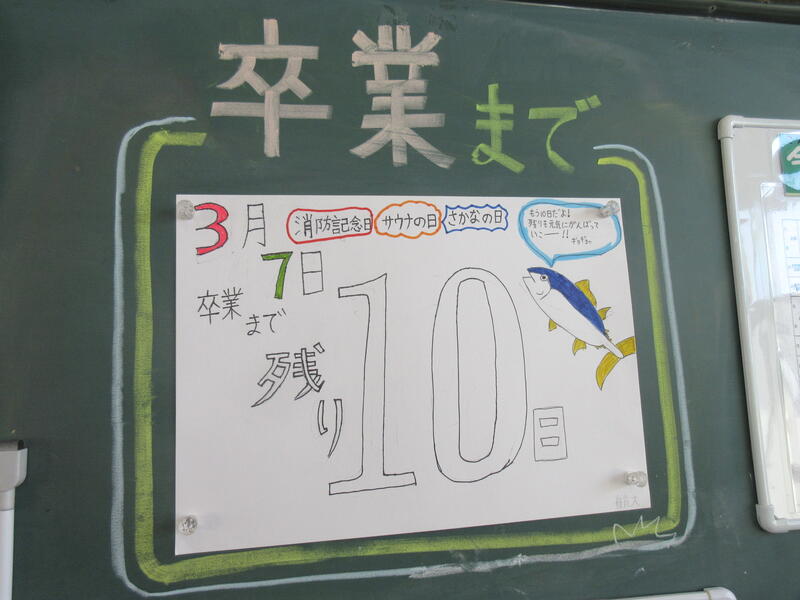 卒業まで
3月7日
消防記念日
サウナの日
さかなの日
もう10日だよ!
残りも元気にがんばって
いこーー!!
ギョギョッ
卒業
まで
残り
10日